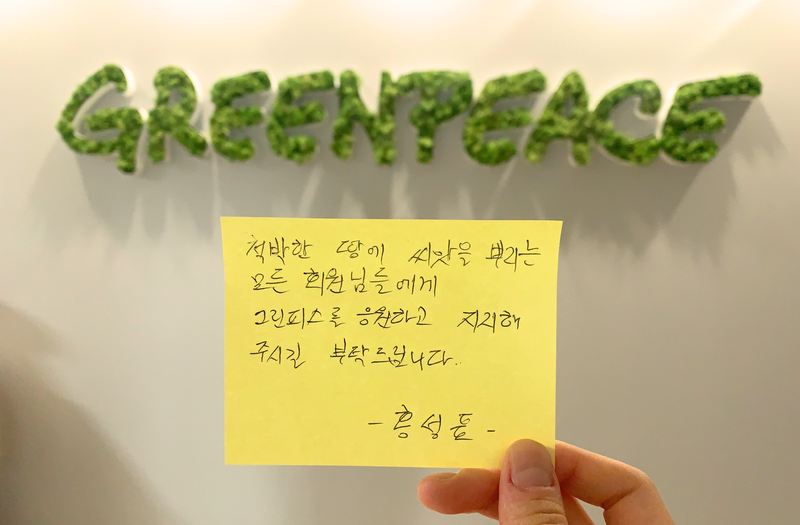 GREENPEACE
척박한 땅에 씨앗을 뿌리는
모든 회원님들에게
그린피스를 응원하고 지지해
주시길 부탁드립니다.
- 홍성